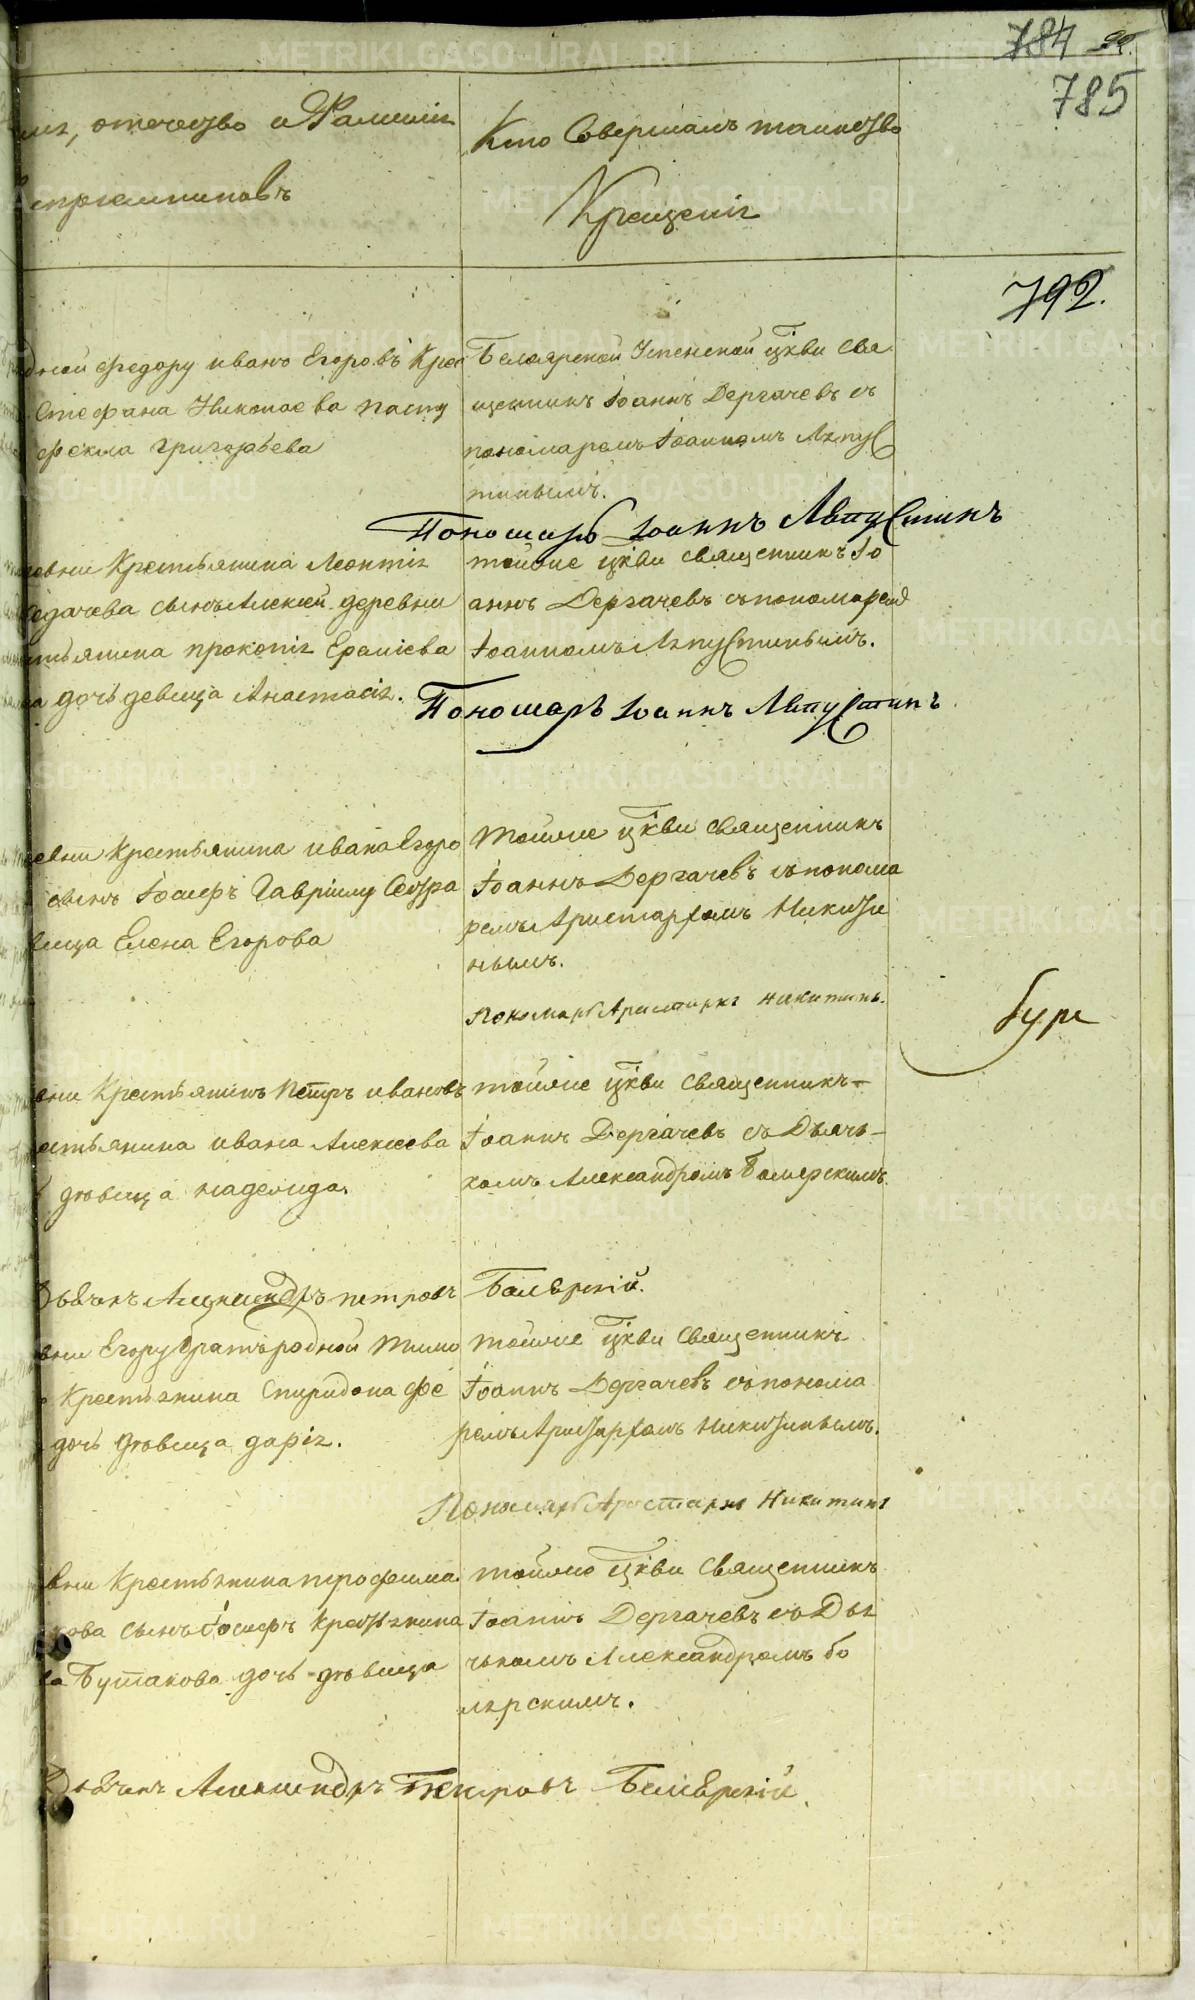 784
785
имя, отечество и Фамилия
восприемниковъ
Кто Совершалъ таинство
Крещения
792.
дной Федору иванъ Егоровъ Крес
Стефана Николаева пасту
Фекла Григорьева
Белоярской Успенской цркви Свя
щенникъ Іоаннъ Дергачевъ съ
пономаремъ Іоанномъ Ляпус
тинымъ.
Пономарь Іоаннъ Ляпустинъ
ревни Крестьянина Леонтия
сынъ Алексей деревни
стьянина прокопия Еремеева
дочь девица Анастасия.
тойже цркви священникъ Іо
аннъ Дергачевъ съ пономаремъ
Іоанномъ Ляпустинымъ.
Пономарь Іоаннъ Ляпустинъ
ревни Крестьянина ивана Егоро
сынъ Іосифъ Гаврилу Сестра
вица Елена Егорова
тойже цркви священникъ
Іоаннъ Дергачевъ съ понома
ремъ Аристархомъ Никити
нымъ.
Пономарь Аристархъ Никитинъ.
вни Крестьянинъ Петръ ивановъ
естьянина ивана Алексеева
девица надежда.
тойже цркви священникъ
Іоаннъ Дергачевъ съ Дьяч
комъ Александромъ Боярскимъ.
Дьячекъ Александръ петровъ Боярскій.
вни Егору братъ родной Тимо
Крестьянина Спиридона Фе
дочь девица дария.
тойже цркви священникъ
Іоаннъ Дергачевъ съ понома
ремъ Аристархомъ Никитинымъ.
Пономарь Аристархъ Никитинъ
вни Крестьянина трофима
кова сынъ Іосифъ Крестьянина
ва Бутакова дочь девица
тойже цркви священникъ
Іоаннъ Дергачевъ съ Дья
чькомъ Александромъ бо
ярскимъ.
Дьячекъ Александръ Петровъ Боярскій.